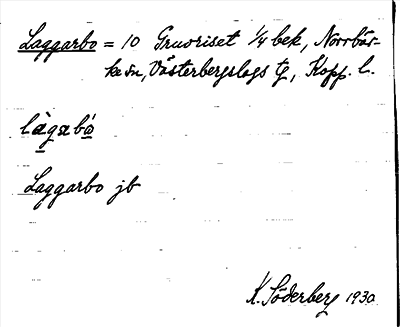 Laggarbo = 10 Gruvriset 1/4 bek, Norrbär-
ke sn, Västerbergslags tg, Kopp. l.
làgabò
Laggarbo jb
K. Söderberg 1930